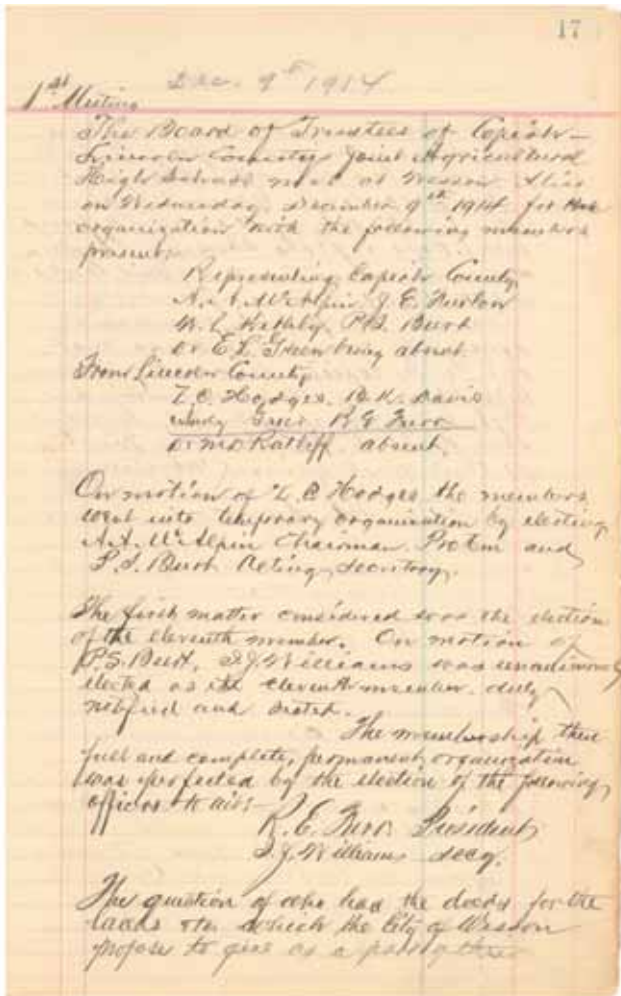 17
Dec. 9th 1914
1st Meeting
The Board of Trustees of Copiah-
Lincoln County Joint Agricultural
High School met at Wesson Miss
on Wednesday, December 9th 1914 for
organization with the following members
present.
Representing Copiah County,
A. A. McAlpin, J. E.
W. L. P.S. Burt
Dr E. L. Green being absent
From Lincoln County,
Z. C. Hodges, B. K. Davis
R E Furr
Dr Ratliff absent.
On motion of Z. C Hodges the members
went into temporary organization by electing
A. A. McAlpin Chairman Protem and
P. S. Burt Acting Secretary.
The first matter considered was the election
of the eleventh member. On motion of
P.S. Burt, Williams was unanimously
elected as the eleventh member. duly
notified and seated.
The membership then
full and complete, permanent organization
was perfected by the election of the following
officers to wit:-
R. E. Furr President,
Williams Secy.
The question of who had the deeds for the
lands which the City of Wesson
propose to give as a part of